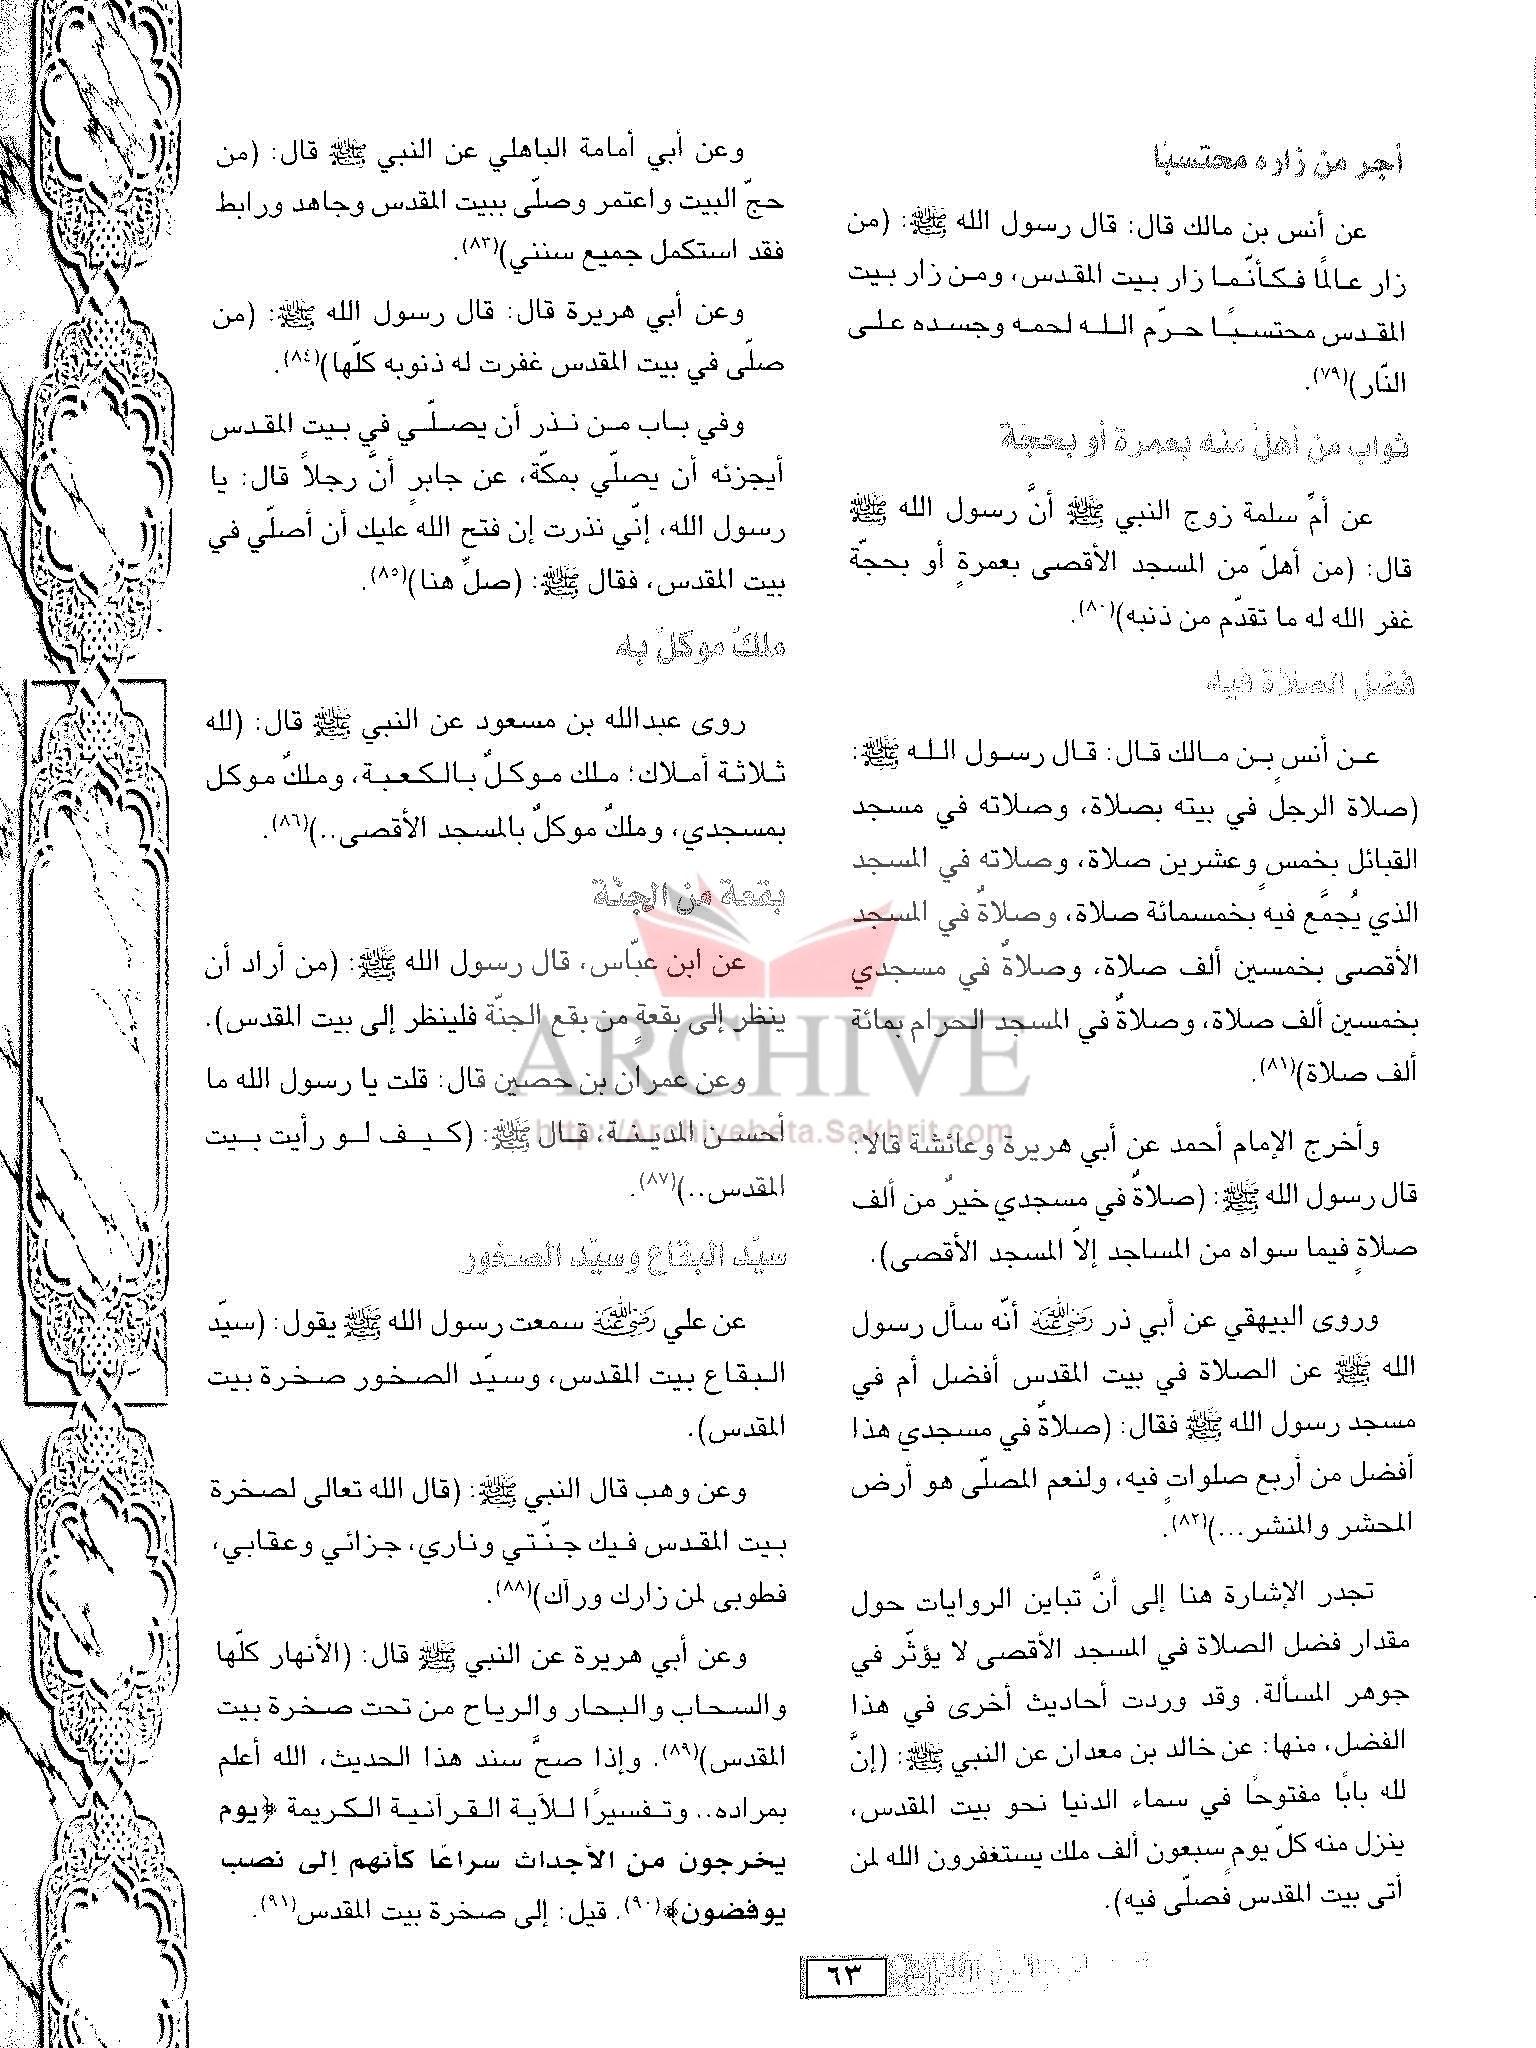 أجر من زاره محتسبًا
عن أنس بن مالك قال: قال رسول الله ﷺ: (من
زار عالمًا فكأنّما زار بيت المقدس، ومن زار بيت
المقدس محتسبًا حرّم الله لحمه وجسده على
النّار)(٧٩).
ثواب من أهلّ منه بعمرة أو بحجّة
عن أمِّ سلمة زوج النبي ﷺ أنَّ رسول الله ﷺ
قال: (من أهلّ من المسجد الأقصى بعمرةٍ أو بحجّة
غفر الله له ما تقدّم من ذنبه)(٨٠).
فضل الصلاة فيه
عن أنسٍ بن مالك قال: قال رسول الله ﷺ:
(صلاة الرجل في بيته بصلاة، وصلاته في مسجد
القبائل بخمسٍ وعشرين صلاة، وصلاته في المسجد
الذي يُجمَّع فيه بخمسمائة صلاة، وصلاةٌ في المسجد
الأقصى بخمسين ألف صلاة، وصلاةٌ في مسجدي
بخمسين ألف صلاة، وصلاةٌ في المسجد الحرام بمائة
ألف صلاة)(٨١).
وأخرج الإمام أحمد عن أبي هريرة وعائشة قالا:
قال رسول الله ﷺ: (صلاةٌ في مسجدي خيرٌ من ألف
صلاةٍ فيما سواه من المساجد إلاّ المسجد الأقصى).
وروى البيهقي عن أبي ذر رضي الله عنه أنّه سأل رسول
الله ﷺ عن الصلاة في بيت المقدس أفضل أم في
مسجد رسول الله ﷺ فقال: (صلاةٌ في مسجدي هذا
أفضل من أربع صلواتٍ فيه، ولنعم المصلّى هو أرض
المحشر والمنشر...)(٨٢).
تجدر الإشارة هنا إلى أنَّ تباين الروايات حول
مقدار فضل الصلاة في المسجد الأقصى لا يؤثّر في
جوهر المسألة. وقد وردت أحاديث أخرى في هذا
الفضل، منها: عن خالد بن معدان عن النبي ﷺ: (إنَّ
لله بابًا مفتوحًا في سماء الدنيا نحو بيت المقدس،
ينزل منه كلّ يومٍ سبعون ألف ملك يستغفرون الله لمن
أتى بيت المقدس فصلّى فيه).
وعن أبي أمامة الباهلي عن النبي ﷺ قال: (من
حجّ البيت واعتمر وصلّى ببيت المقدس وجاهد ورابط
فقد استكمل جميع سنني)(٨٣).
وعن أبي هريرة قال: قال رسول الله ﷺ: (من
صلّى في بيت المقدس غفرت له ذنوبه كلّها)(٨٤).
وفي باب من نذر أن يصلّي في بيت المقدس
أيجزئه أن يصلّي بمكّة، عن جابرٍ أنَّ رجلاً قال: يا
رسول الله، إنّي نذرت إن فتح الله عليك أن أصلّي في
بيت المقدس، فقال ﷺ: (صلِّ هنا)(٨٥).
ملكٌ موكلٌ به
روى عبدالله بن مسعود عن النبي ﷺ قال: (لله
ثلاثة أملاك؛ ملك موكلٌ بالكعبة، وملكٌ موكل
بمسجدي، وملكٌ موكلٌ بالمسجد الأقصى..)(٨٦).
بقعة من الجنّة
عن ابن عبّاس، قال رسول الله ﷺ: (من أراد أن
ينظر إلى بقعةٍ من بقع الجنّة فلينظر إلى بيت المقدس).
وعن عمران بن حصين قال: قلت يا رسول الله ما
أحسن المدينة، قال ﷺ: (كيف لو رأيت بيت
المقدس..)(٨٧).
سيّد البقاع وسيّد الصخور
عن علي رضي الله عنه سمعت رسول الله ﷺ يقول: (سيّد
البقاع بيت المقدس، وسيّد الصخور صخرة بيت
المقدس).
وعن وهب قال النبي ﷺ: (قال الله تعالى لصخرة
بيت المقدس فيك جنّتي وناري، جزائي وعقابي،
فطوبى لمن زارك ورآك)(٨٨).
وعن أبي هريرة عن النبي ﷺ قال: (الأنهار كلّها
والسحاب والبحار والرياح من تحت صخرة بيت
المقدس)(٨٩). وإذا صحَّ سند هذا الحديث، الله أعلم
بمراده.. وتفسيرًا للآية القرآنية الكريمة ﴿يوم
يخرجون من الأجداث سراعًا كأنهم إلى نصب
يوفضون﴾(٩٠). قيل: إلى صخرة بيت المقدس(٩١).
ARCHIVE
http://Archivebeta.Sakhrit.com
٦٣